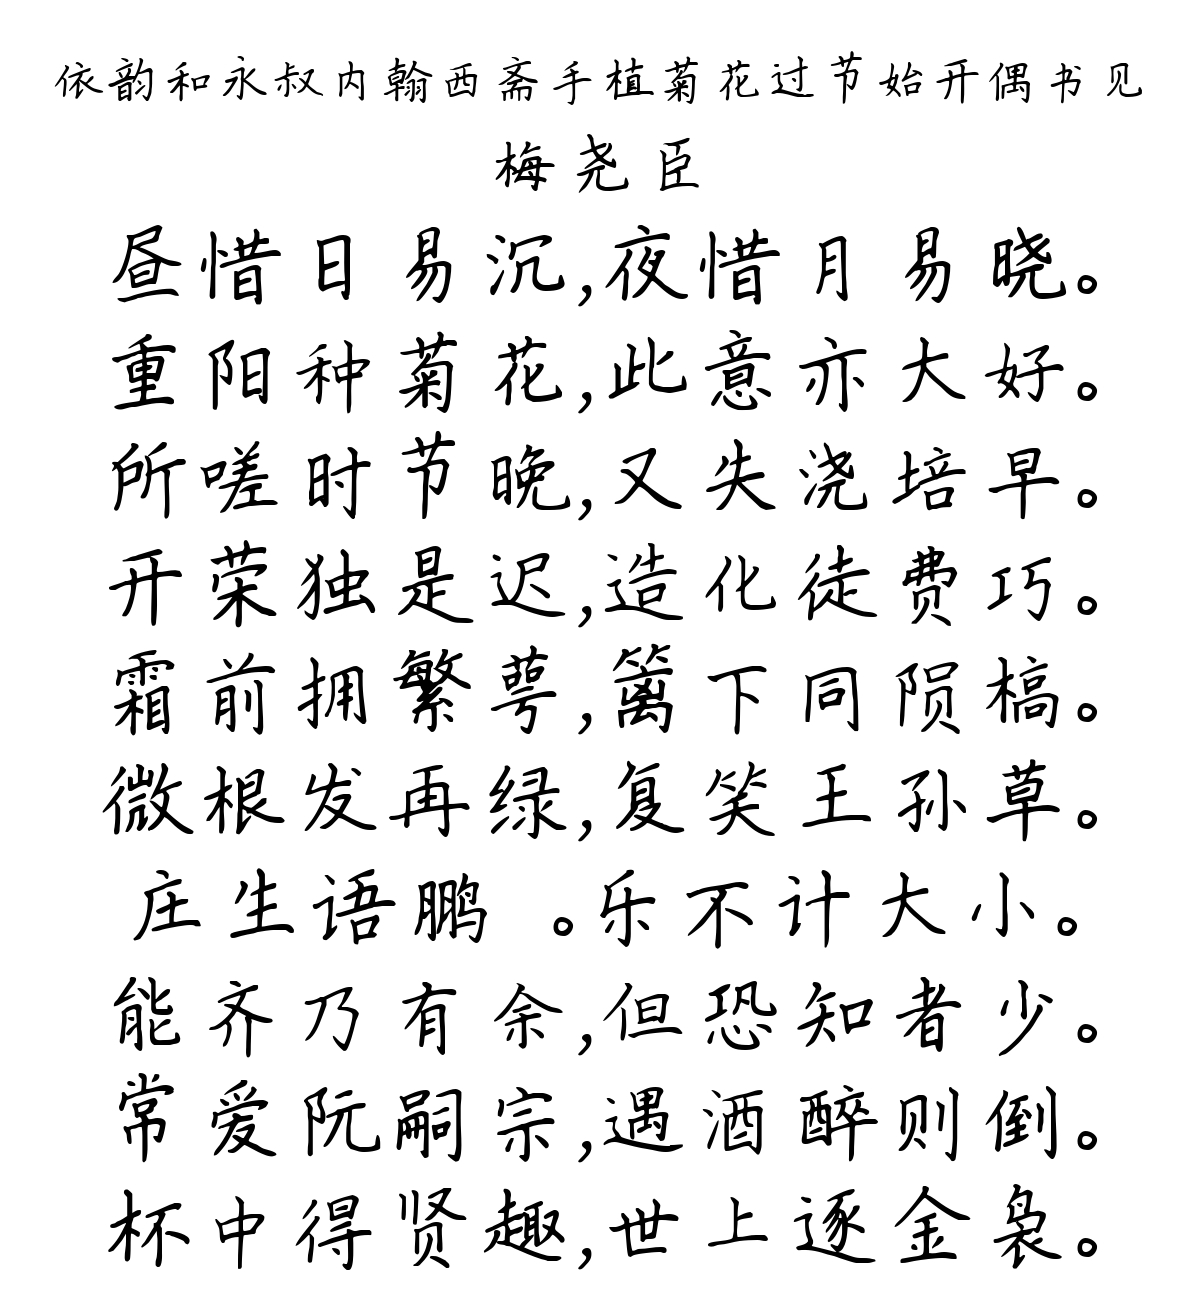 依韵和永叔内翰西斋手植菊花过节始开偶书见
梅尧臣
昼惜日易沉,夜惜月易晓。
重阳种菊花,此意亦大好。
所嗟时节晚,又失浇培早。
开荣独是迟,造化徒费巧。
霜前拥繁萼,篱下同陨槁。
微根发再绿,复笑王孙草。
庄生语鹏 。乐不计大小。
能齐乃有余,但恐知者少。
常爱阮嗣宗,遇酒醉则倒。
杯中得贤趣,世上逐金袅。